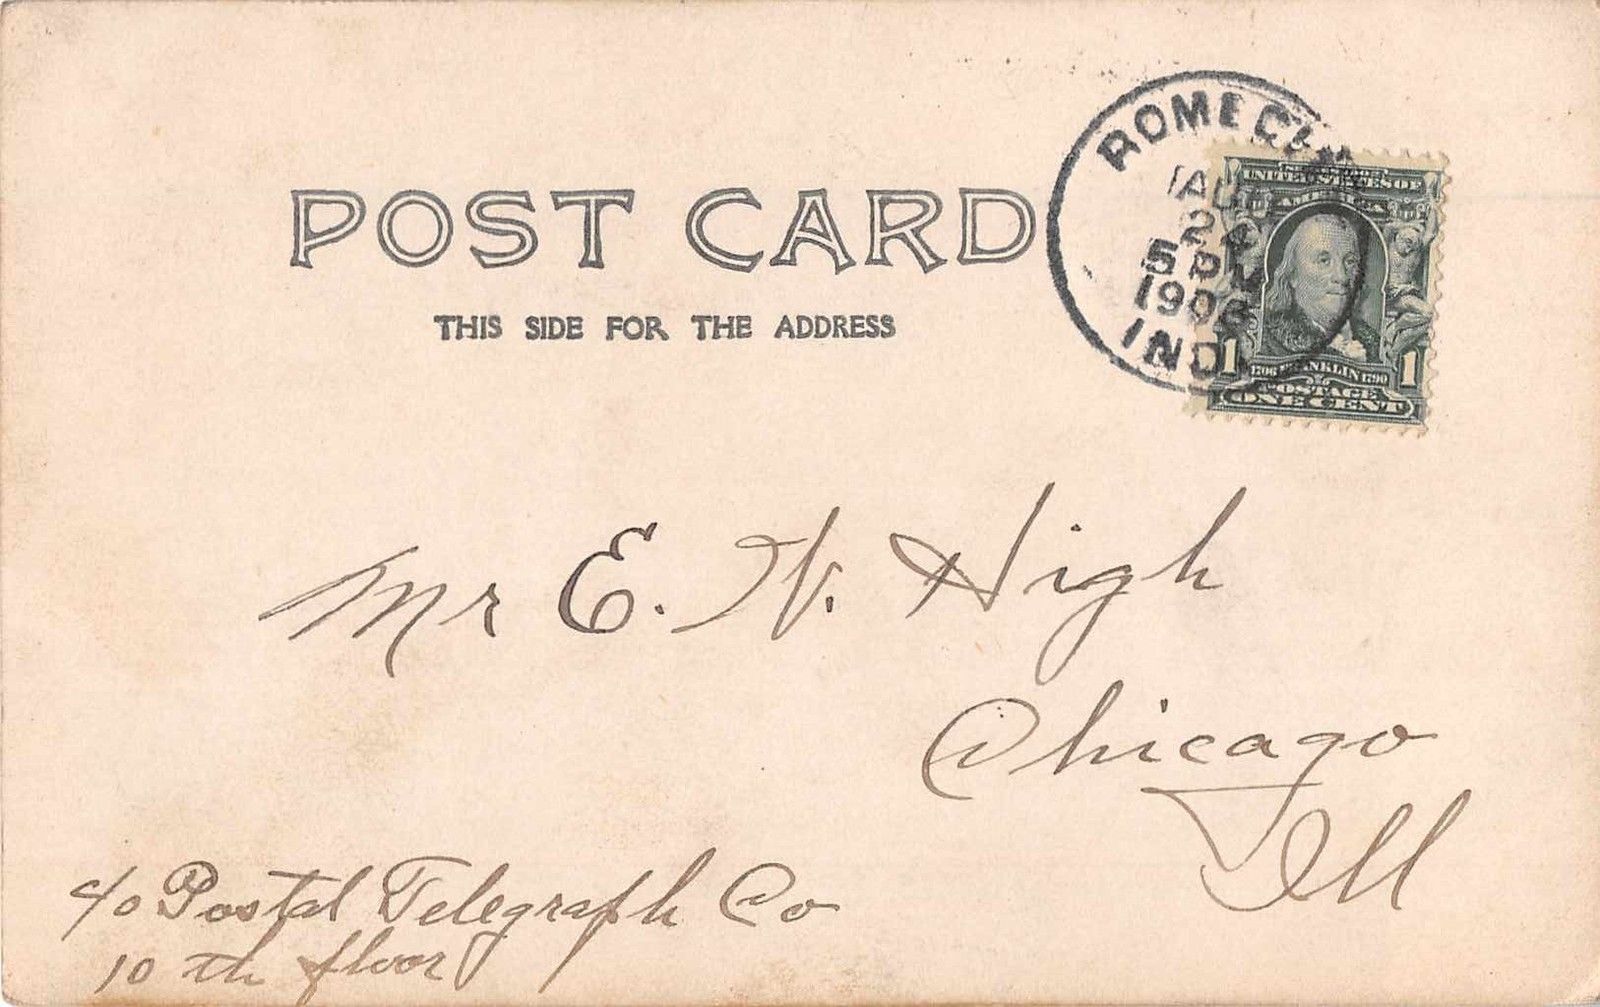 POST CARD
THIS SIDE FOR THE ADDRESS
ROME CITY
AUG
2
5 PM
1908
IND
UNITED STATES OF
AMERICA
1706 FRANKLIN 1790
1 1
POSTAGE
ONE CENT
Mr E. W. High
Chicago
Ill
c/o Postal Telegraph Co
10 th floor